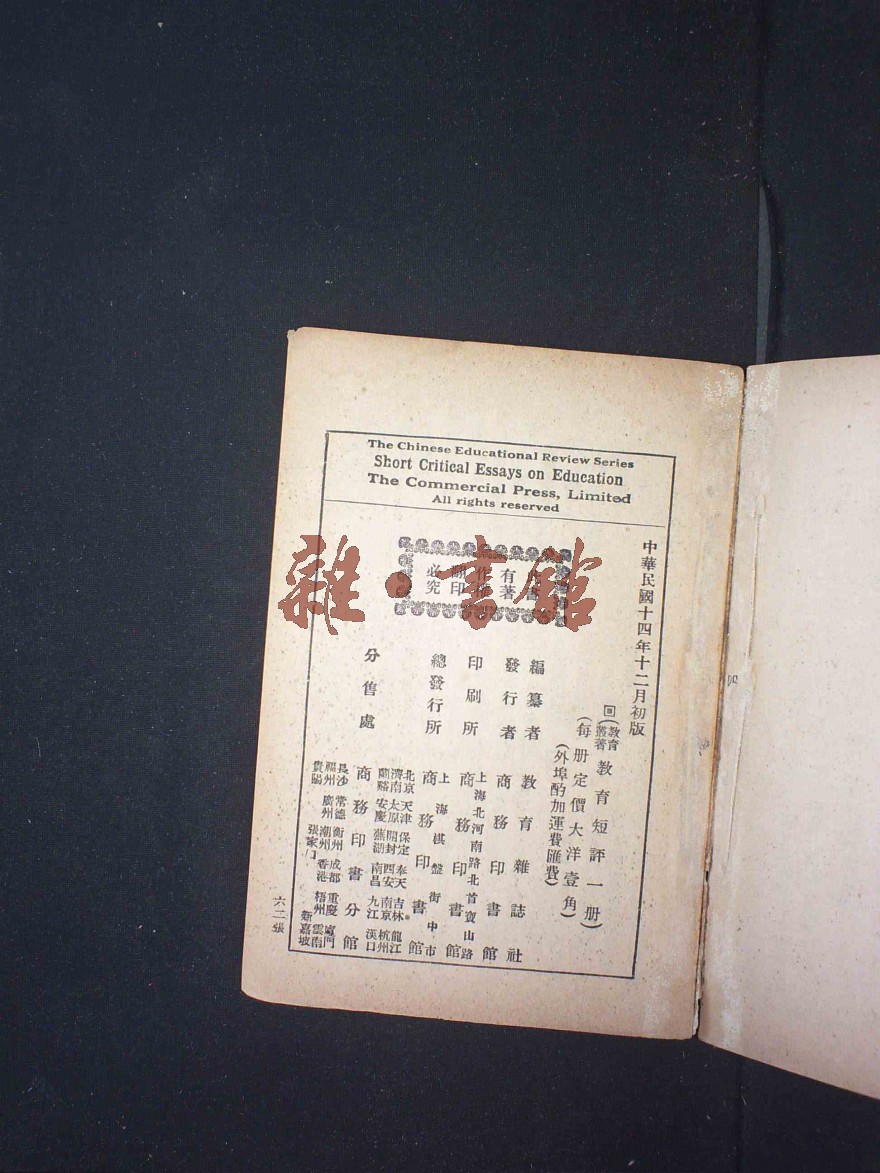 The Chinese Educational Review Series
Short Critical Essays on Education
The Commercial Press, Limited
All rights reserved
中華民國十四年十二月初版
有著
作權
翻印
必究
回(教育叢著)教育短評一册)
(每册定價大洋壹角)
(外埠酌加運費匯費)
編纂者 教育雜誌社
發行者 商務印書館
印刷所 上海北河南路北首寶山路
商務印書館
總發行所 上海棋盤街中市
商務印書館
分售處 北京天津保定奉天吉林龍江
濟南太原開封西安南京杭州
蘭谿安慶蕪湖南昌九江漢口
商務印書分館
長沙常德衡州成都重慶廈門
福州廣州潮州香港梧州雲南
貴陽 張家口 新嘉坡
六二張
雜·書館